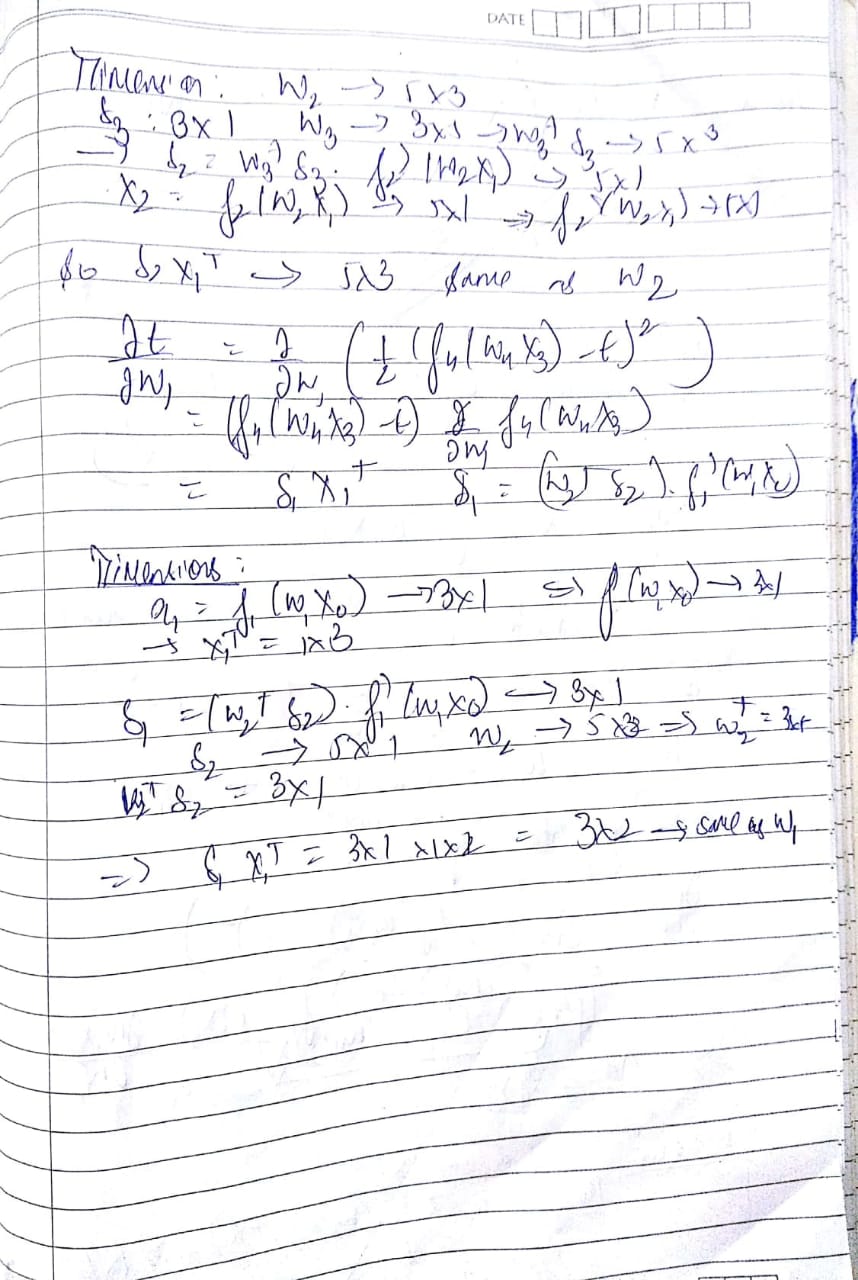 DATE
Dimension: W₂ → 5x3
δ₃ : 3x1 W₃ → 3x5 → W₃ᵀ δ₃ → 5x3
→ δ₂ = W₃ᵀ δ₃ . f₂'(W₂X₁) → 5x1
X₂ = f₂(W₂X₁) → 5x1 ⇒ f₂'(W₂X₁) → 5x1
So δ₂ X₁ᵀ → 5x3 same as W₂
∂t/∂W₁ = ∂/∂W₁ (1/2 (f₄(W₄X₃) - t)²)
= (f₄(W₄X₃) - t) ∂/∂W₁ f₄(W₄X₃)
= δ₁ X₁ᵀ δ₁ = (W₂ᵀ δ₂) . f₁'(W₁X₀)
Dimensions:
x₁ = f₁(W₁X₀) → 3x1 ⇒ f(W₁X₀) → 3x1
→ X₁ᵀ = 1x3
δ₁ = (W₂ᵀ δ₂) . f₁'(W₁X₀) → 3x1
δ₂ → 5x1 W₂ → 5x3 ⇒ W₂ᵀ = 3x5
W₂ᵀ δ₂ = 3x1
=> δ₁ X₁ᵀ = 3x1 x 1x2 = 3x2 → same as W₁